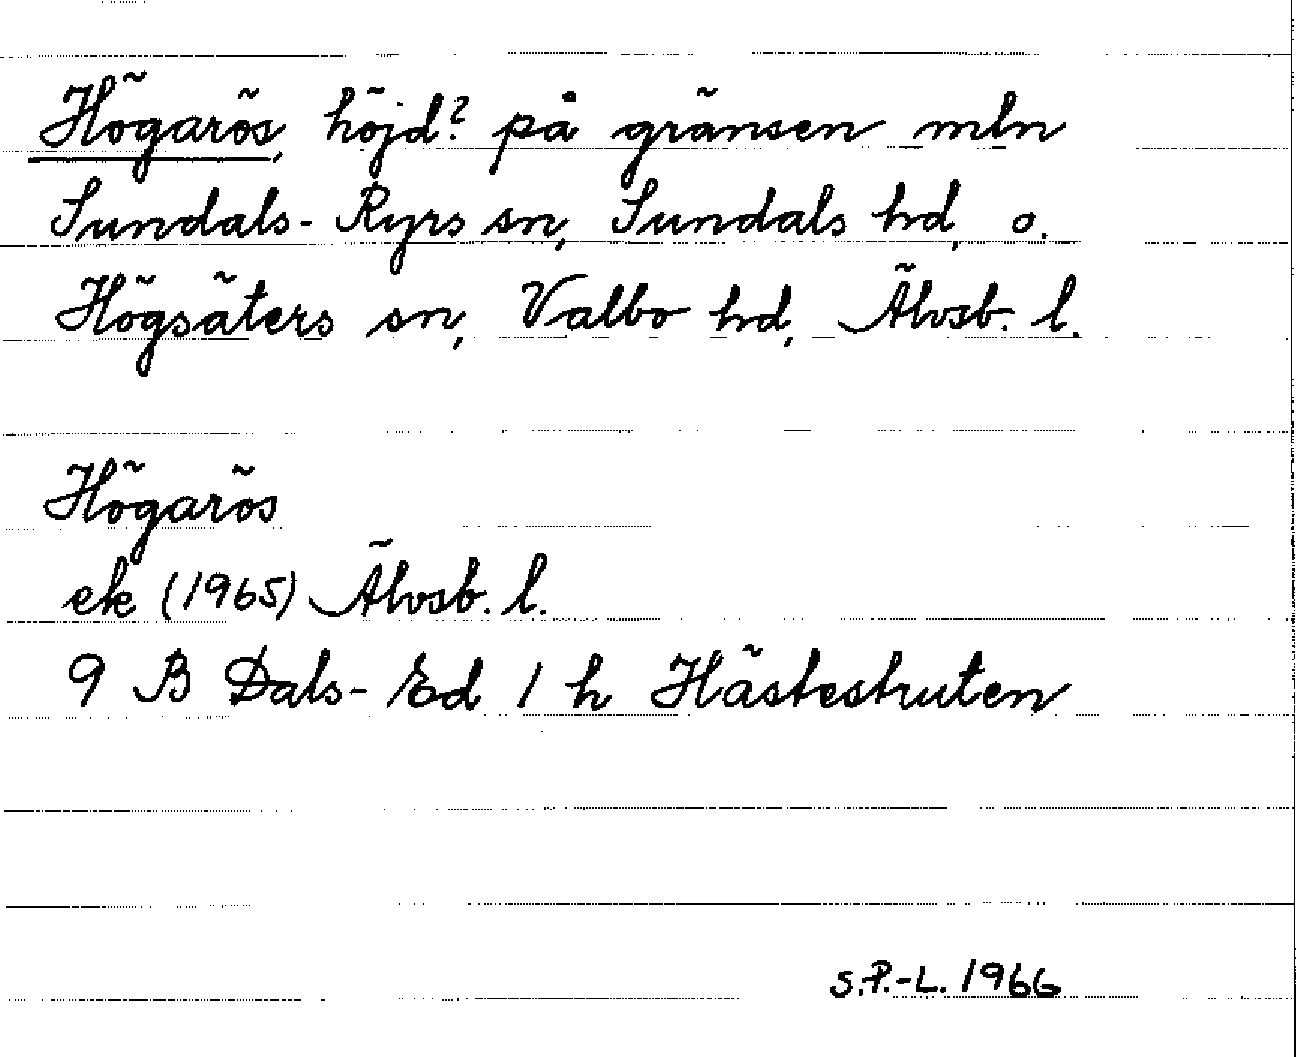 Högarös, höjd? på gränsen mln
Sundals-Ryrs sn, Sundals hd, o.
Högsäters sn, Valbo hd, Älvsb. l.
Högarös
ek (1965) Älvsb. l.
9 B Dals-Ed 1 h Hästestruten
S.P.-L. 1966